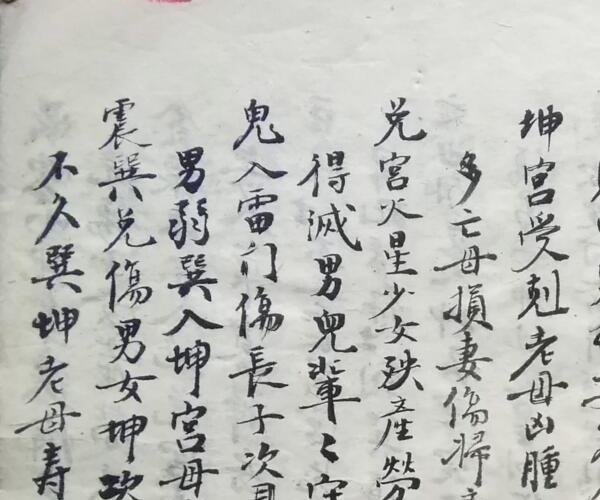 坤宮受剋老母凶腫
多亡母損妻傷婦
兌宮火星少女殃產勞
得滅男兒輩〻
鬼入雷门傷長子次
男弱巽入坤宮母
震巽兌傷男女坤
不久巽坤老母寿